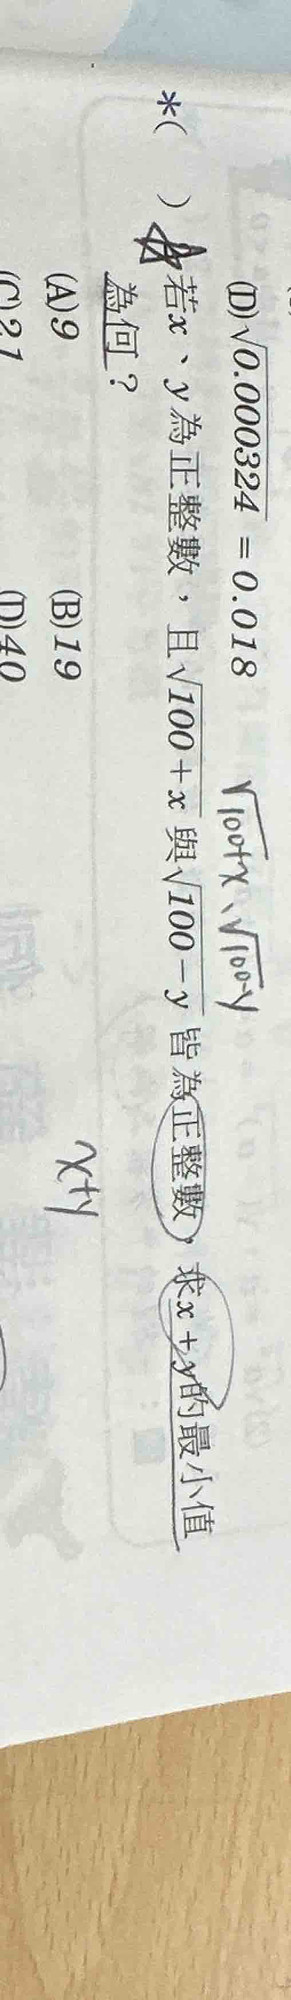 (D)√0.000324 = 0.018
√100+x、√100-y
*(　　) 若x、y為正整數，且√100+x 與√100-y 皆為正整數，求x+y的最小值
為何？
x+y
(A)9　(B)19
(C)21　(D)40